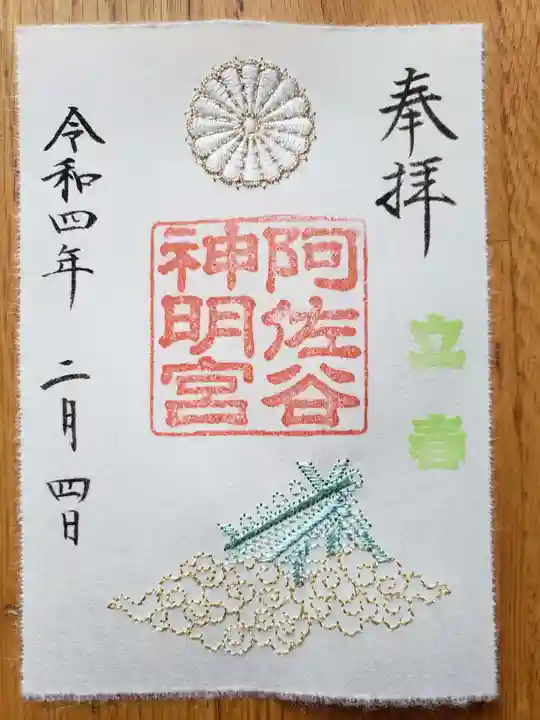 奉拝
立春
阿佐谷
神明宮
令和四年 二月四日